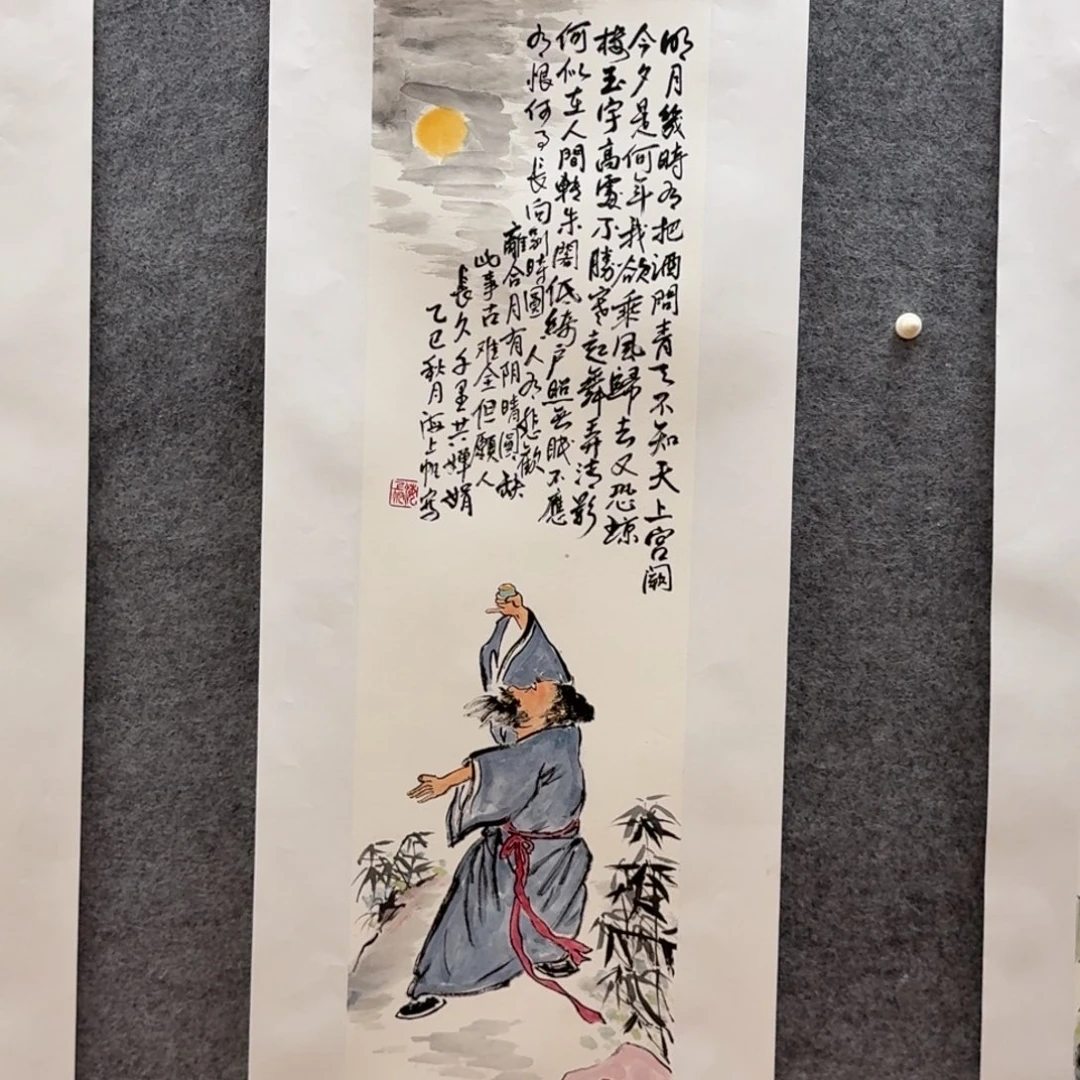 明月幾時有把酒問青天不知天上宮闕
今夕是何年我欲乘風歸去又恐琼
楼玉宇高處不勝寒起舞弄清影
何似在人間轉朱閣低綺户照無眠不應
有恨何事長向别時圓人有悲歡
離合月有阴晴圓缺
此事古难全但願人
長久千里共嬋娟
乙巳秋月海上帆写